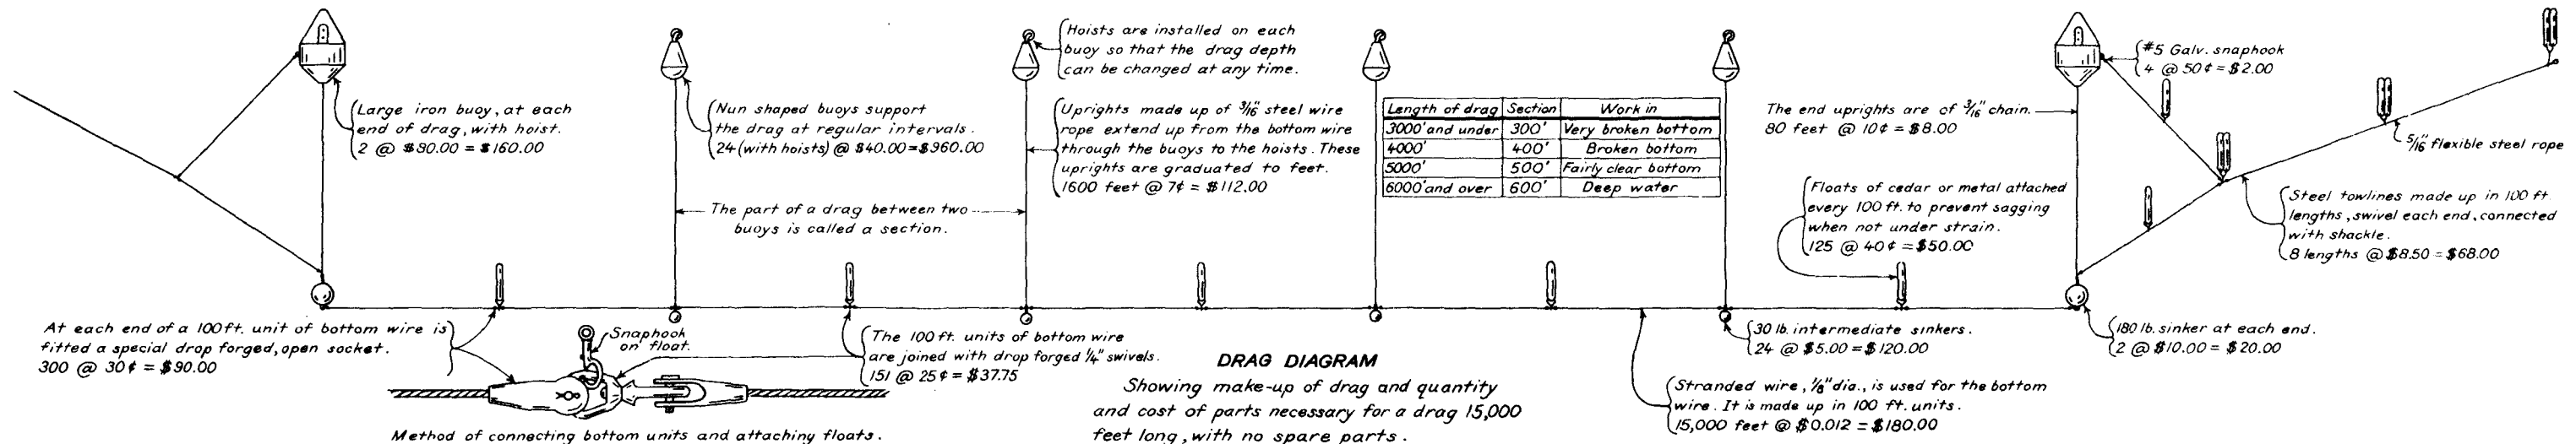 Large iron buoy, at each
end of drag, with hoist.
2 @ $80.00 = $160.00
Nun shaped buoys support
the drag at regular intervals.
24 (with hoists) @ $40.00=$960.00
Hoists are installed on each
buoy so that the drag depth
can be changed at any time.
Uprights made up of 3/16" steel wire
rope extend up from the bottom wire
through the buoys to the hoists. These
uprights are graduated to feet.
1600 feet @ 7¢ = $112.00
The part of a drag between two
buoys is called a section.
Length of drag Section Work in
3000' and under 300' Very broken bottom
4000' 400' Broken bottom
5000' 500' Fairly clear bottom
6000' and over 600' Deep water
The end uprights are of 3/16" chain.
80 feet @ 10¢ = $8.00
#5 Galv. snaphook
4 @ 50¢ = $2.00
5/16" flexible steel rope
Floats of cedar or metal attached
every 100 ft. to prevent sagging
when not under strain.
125 @ 40¢ = $50.00
Steel towlines made up in 100 ft.
lengths, swivel each end, connected
with shackle.
8 lengths @ $8.50 = $68.00
At each end of a 100 ft. unit of bottom wire is
fitted a special drop forged, open socket.
300 @ 30¢ = $90.00
Snaphook
on float.
The 100 ft. units of bottom wire
are joined with drop forged 1/4" swivels.
151 @ 25¢ = $37.75
Method of connecting bottom units and attaching floats.
DRAG DIAGRAM
Showing make-up of drag and quantity
and cost of parts necessary for a drag 15,000
feet long, with no spare parts.
30 lb. intermediate sinkers.
24 @ $5.00 = $120.00
180 lb. sinker at each end.
2 @ $10.00 = $20.00
Stranded wire, 1/8" dia., is used for the bottom
wire. It is made up in 100 ft. units.
15,000 feet @ $0.012 = $180.00